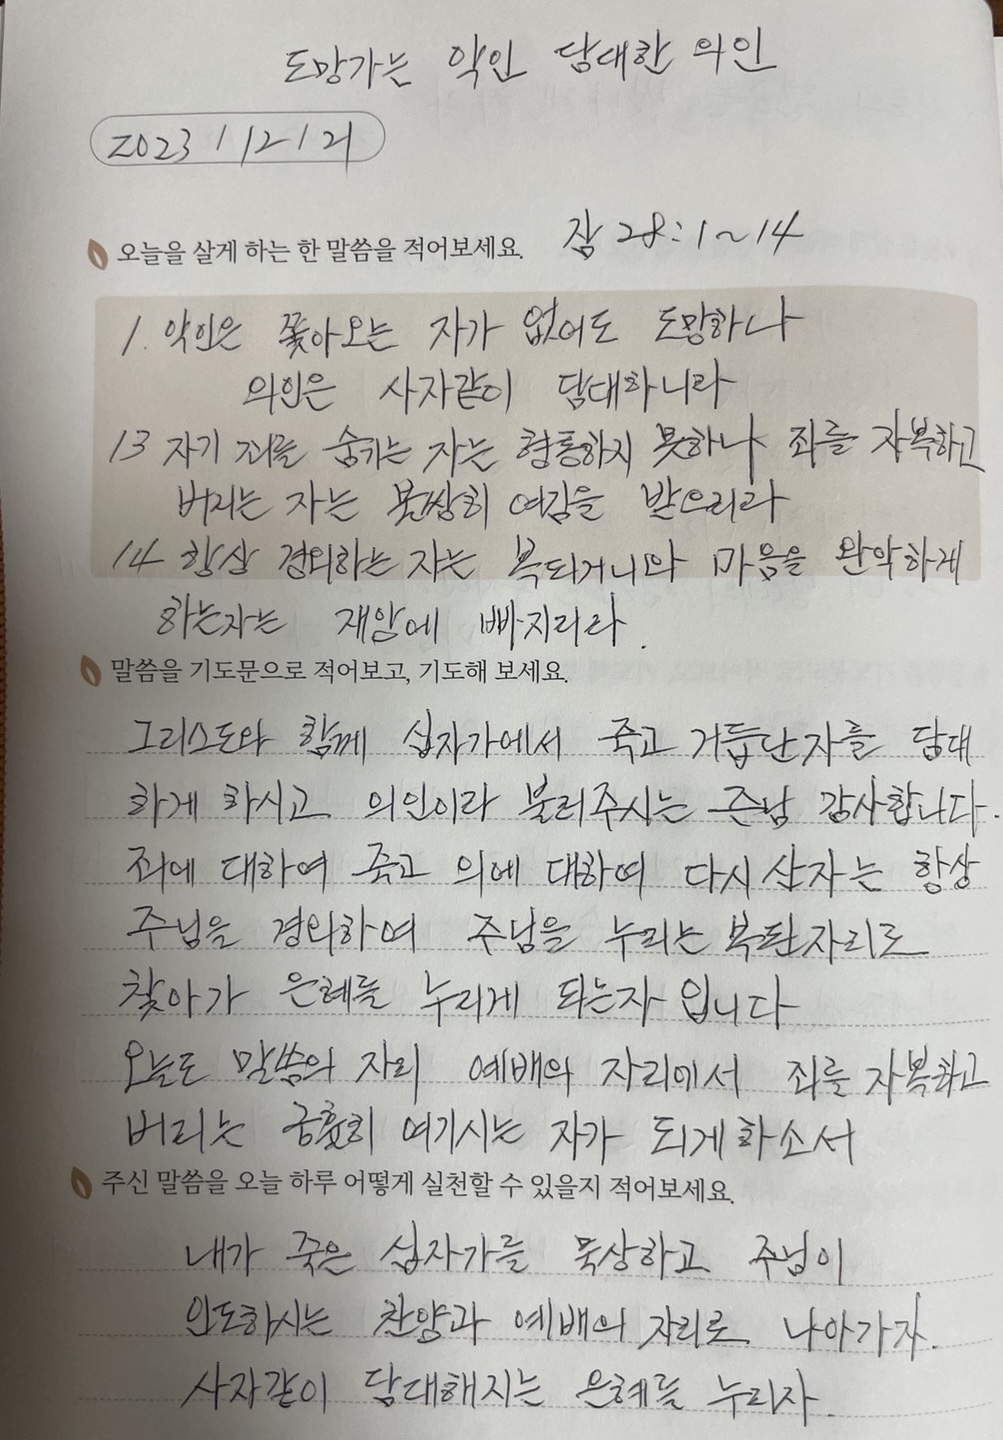 도망가는 악인 담대한 의인
2023 / 12 / 21
오늘을 살게 하는 한 말씀을 적어보세요. 잠 28:1~14
1. 악인은 쫓아오는 자가 없어도 도망하나
의인은 사자같이 담대하니라
13 자기 죄를 숨기는 자는 형통하지 못하나 죄를 자복하고
버리는 자는 불쌍히 여김을 받으리라
14 항상 경외하는 자는 복되거니와 마음을 완악하게
하는자는 재앙에 빠지리라.
말씀을 기도문으로 적어보고, 기도해 보세요.
그리스도와 함께 십자가에서 죽고 거듭난 자를 담대
하게 하시고 의인이라 불러주시는 주님 감사합니다.
죄에 대하여 죽고 의에 대하여 다시 산자는 항상
주님을 경외하여 주님을 누리는 복된 자리로
찾아가 은혜를 누리게 되는자 입니다
오늘도 말씀의 자리 예배의 자리에서 죄를 자복하고
버리는 긍휼히 여기시는 자가 되게 하소서
주신 말씀을 오늘 하루 어떻게 실천할 수 있을지 적어보세요.
내가 죽은 십자가를 묵상하고 주님이
인도하시는 찬양과 예배의 자리로 나아가자.
사자같이 담대해지는 은혜를 누리자.